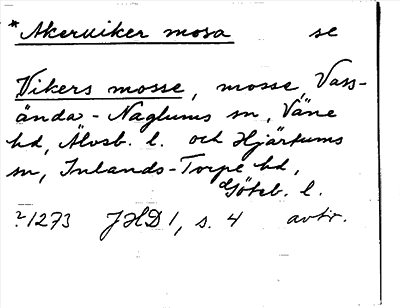 *Akeruiker mosa se
Vikers mosse, mosse, Vass-
ända-Naglums sn, Väne
hd, Älvsb. l. och Hjärtums
sn, Inlands-Torpe hd,
Göteb. l.
?1273 JHD 1, s. 4 avtr.